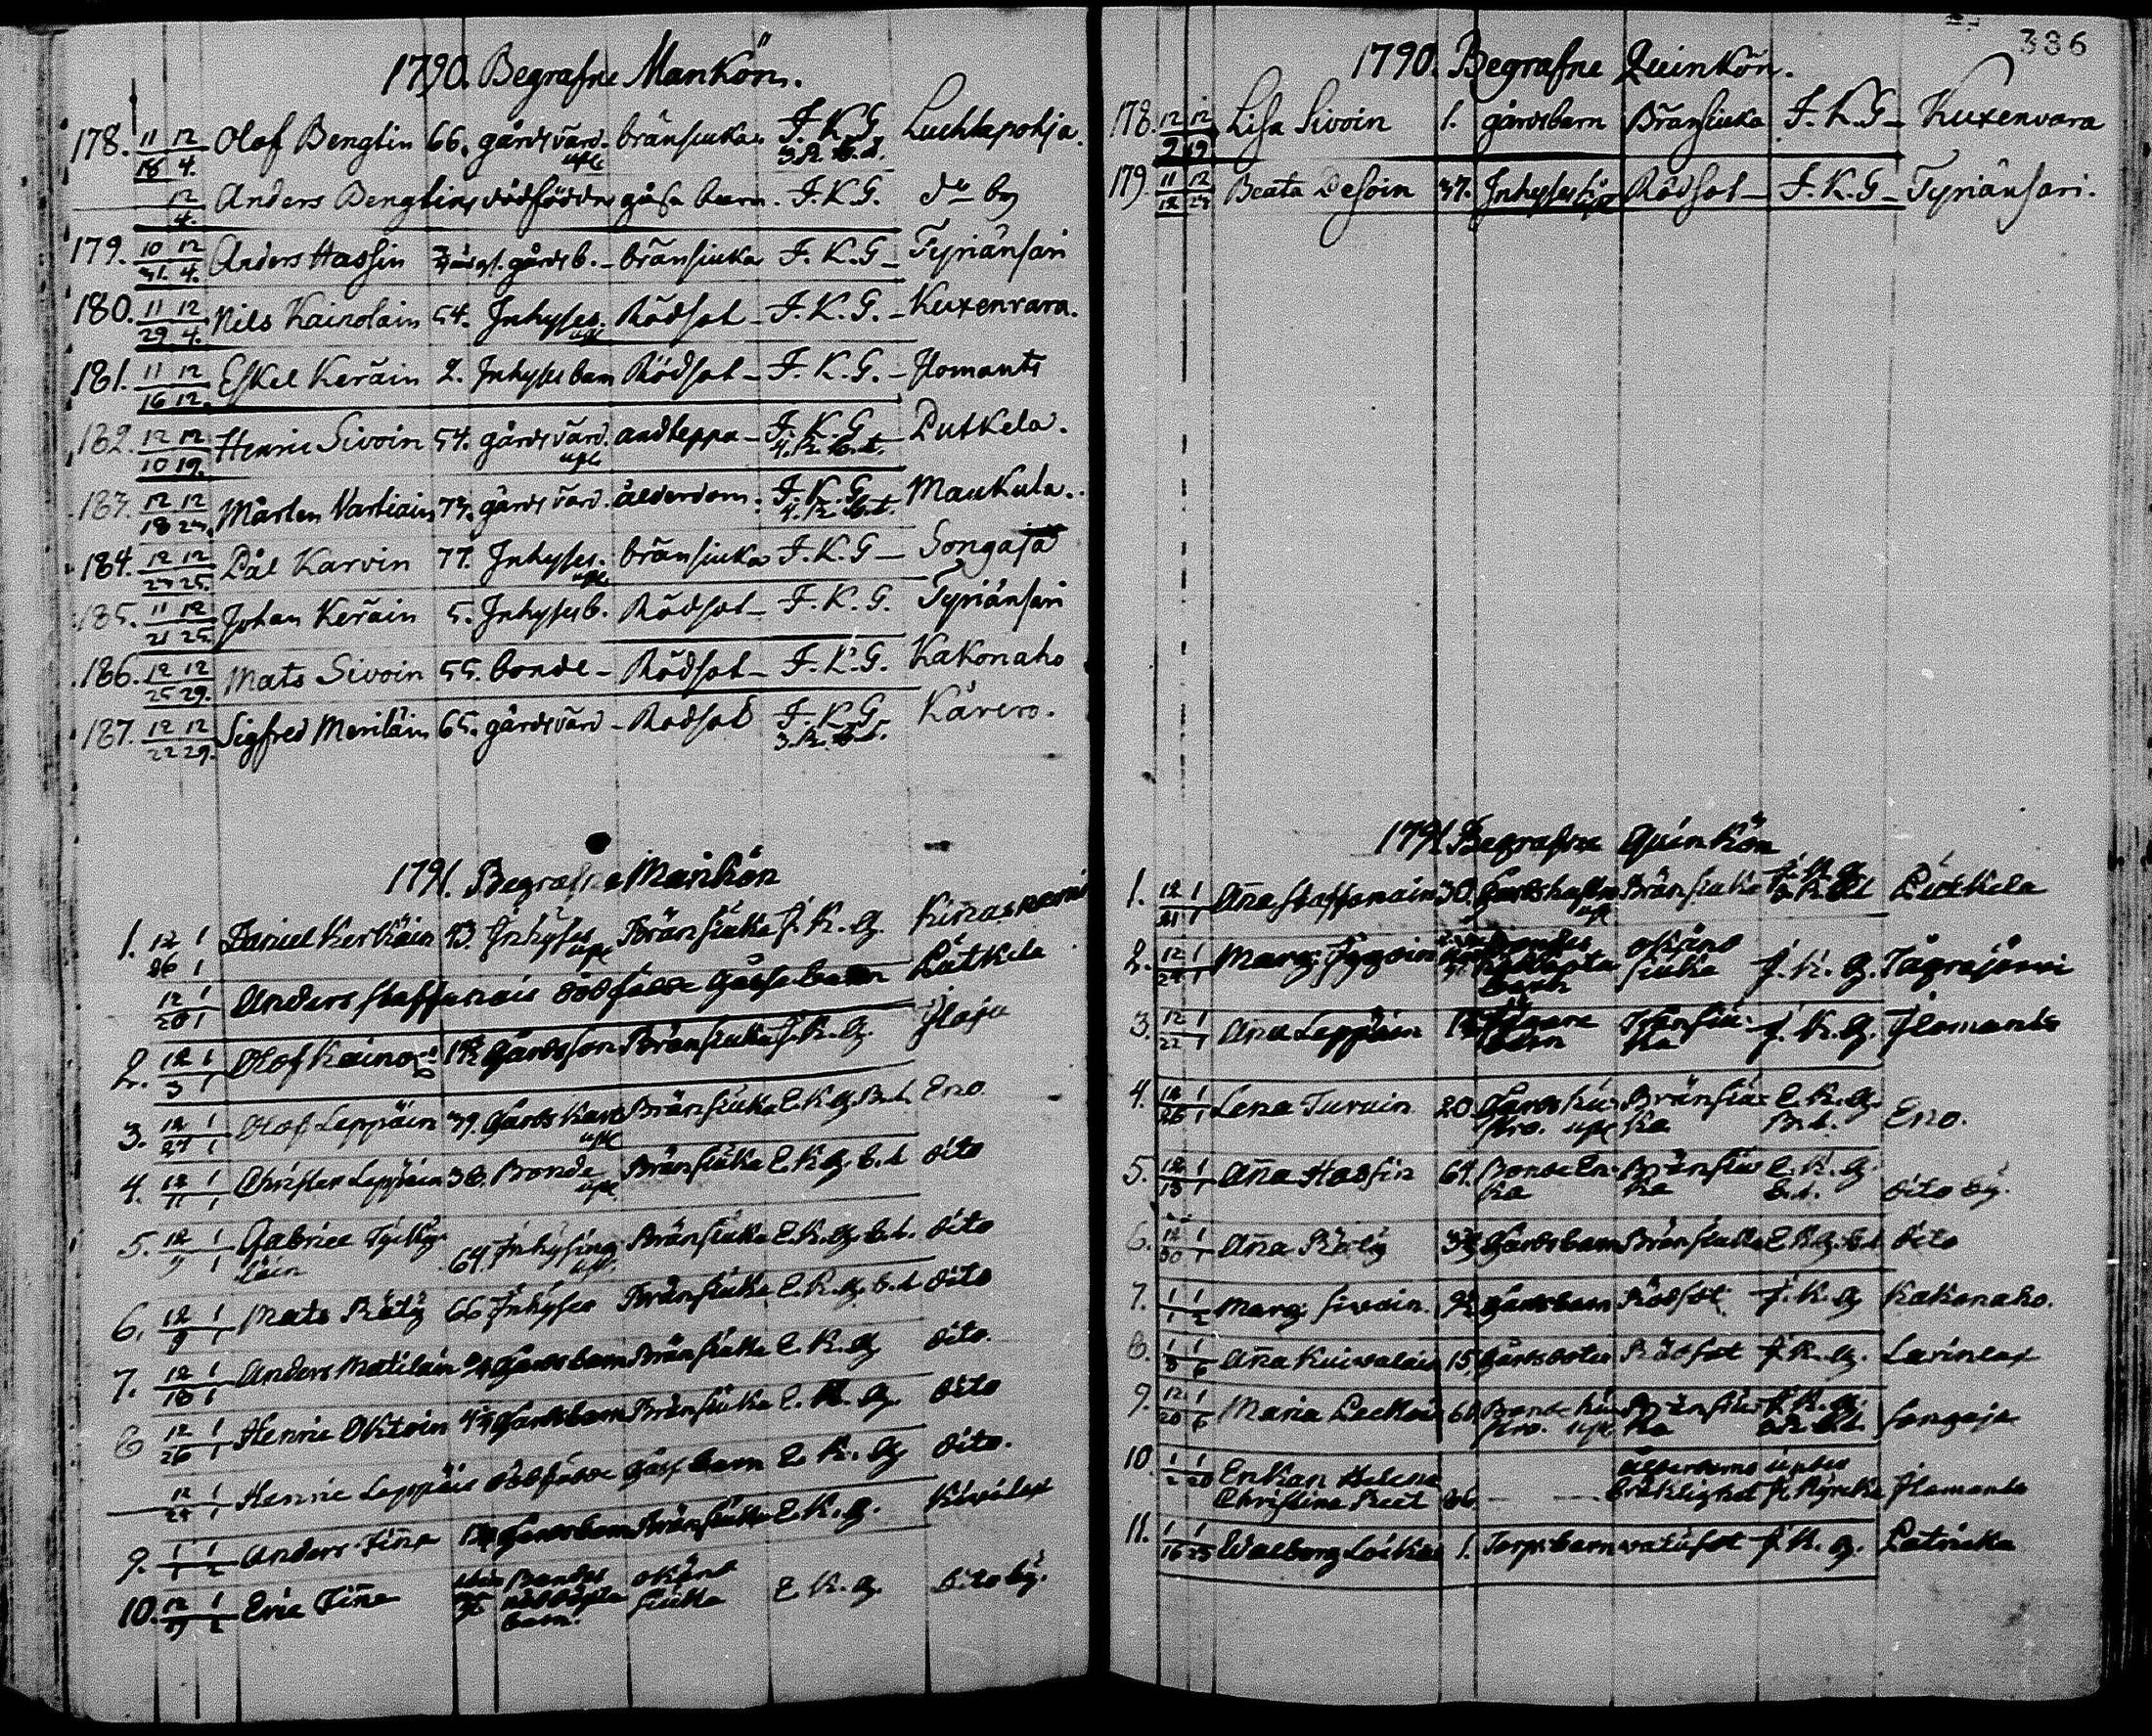 1790. Begrafne Mankön.
178. 11/18 12/4. Olof Bengtin 66. gårdsvärd. upl. bränsiuka F. K. G. 3. R. b.d. Luchtapohja.
12/4. Anders Bengtins dödfödde gåsse barn. F. K. G. do by
179. 10/31. 12/4. Anders Hassin gårdsb. bränsiuka F. K. G. Tyriänsari
180. 11/29 12/4. Nils Kainolain 54. Inhyses. upl. Rödsot F. K. G. Kuxenvara.
181. 11/16 12/12. Eskel Keräin 2. Inhyses barn Rödsot F. K. G. Ilomants
182. 12/10 12/19. Henric Sivoin 54. gårdsvärd. upl. andteppa F. K. G. 4. R. b.d. Putkela.
183. 12/18 12/23. Mårten Vartiain 73. gårdsvärd. ålderdom. F. K. G. 4. R. b.d. Maukula.
184. 12/23 12/25. Pål Karvin 77. Inhyses. upl. bränsiuka F. K. G. Songaja
185. 11/21 12/25. Johan Keräin 5. Inhyses b. Rödsot F. K. G. Tyriänsari
186. 12/25 12/29. Mats Sivoin 55. bonde Rödsot F. K. G. Kakonaho
187. 12/22 12/29. Sigfred Meriläin 65. gårdsvärd Rödsot F. K. G. 3. R. b.d. Kåvero.
1791. Begrafne Mankön
1. 12/26 1/1 Daniel Kerkäin 43. Inhyses upl Bränsiuka F. K. G.
12/20 1/1 Anders Staffanais dödfödde Gåsse barn Putkela
2. 12/3 1/1 Olof Kaino Gårdsson Bränsiuka F. K. G. Ilaja
3. 12/27 1/1 Olof Leppäin 39. Gårds Karl upl Bränsiuka E. K. G. B.d. Eno.
4. 12/11 1/1 Christer Leppäin 36. Bonde upl Bränsiuka E. K. G. b.d dito
5. 12/9 1/1 Gabriel Tyiky-
läin 64. Inhysing upl. Bränsiuka E. K. G. b.d. dito
6. 12/9 1/1 Mats Räty 66 Inhyses Bränsiuka E. K. G. b.d dito
7. 12/18 1/1 Anders Matilain Gårdsbarn Bränsiuka E. K. G dito.
8 12/26 1/1 Henric Oktoin Gårdsbarn Bränsiuka E. K. G. dito
12/27 1/1 Henric Leppäis dödfödde Gåss barn E. K. G dito.
9. 1/1 1/2 Anders Tiña Gårdsbarn Bränsiuka E. K. G. Kivilax
10. 12/19 1/2 Eric Tiña Bondes nöddöpta barn. okänd siuka E. K. G. dito by.
386
1790. Begrafne Quinkön.
178. 12/9 12/19 Lisa Sivoin 1. gårdsbarn Bränsiuka F. K. G Kuxenvara
179. 11/12 12/23 Beata Desoin 37. Inhyses upl Rödsot F. K. G Tyriänsari.
1791. Begrafne Quinkön
1. 12/21 1/1 Aña Staffanain 30. upl Bränsiuka F. K. G Putkela
2. 12/27 1/1 Marg: Iggoin Bondes nöddöpta barn okänd siuka F. K. G. Tågrajärvi
3. 12/22 1/1 Aña Leppäin barn Bränsiu-
ka F. K. G. Ilomants
4. 12/26 1/1 Lena Turuin 20. Gårds hu-
stro. upl Bränsiu-
ka E. K. G. B.d. Eno.
5. 12/18 1/1 Aña Hassin 64. Bonde En-
ka Bränsiu-
ka E. K. G. b.d. dito by.
6. 12/30 1/1 Aña Räty Gårdsbarn Bränsiuka E. K. G. b.d dito
7. 1/1 1/2 Marg: Sivoin Gårdsbarn Rödsot F. K. G Kakonaho.
8. 1/3 1/6 Aña Kuivalain 15. Gårdsdoter Rödsot F. K. G. Lavinlax
9. 12/20 1/6 Maria Bonde hu-
stro. upl Bränsiu-
ka F. K. G. b.d. Songaja
10. 1/2 1/20 Enkan Helena
Christina Reet 86. ålderdoms bräklighet Ilomants
11. 1/16 1/25 Walborg 1. Torpsbarn vatusot F. K. G.